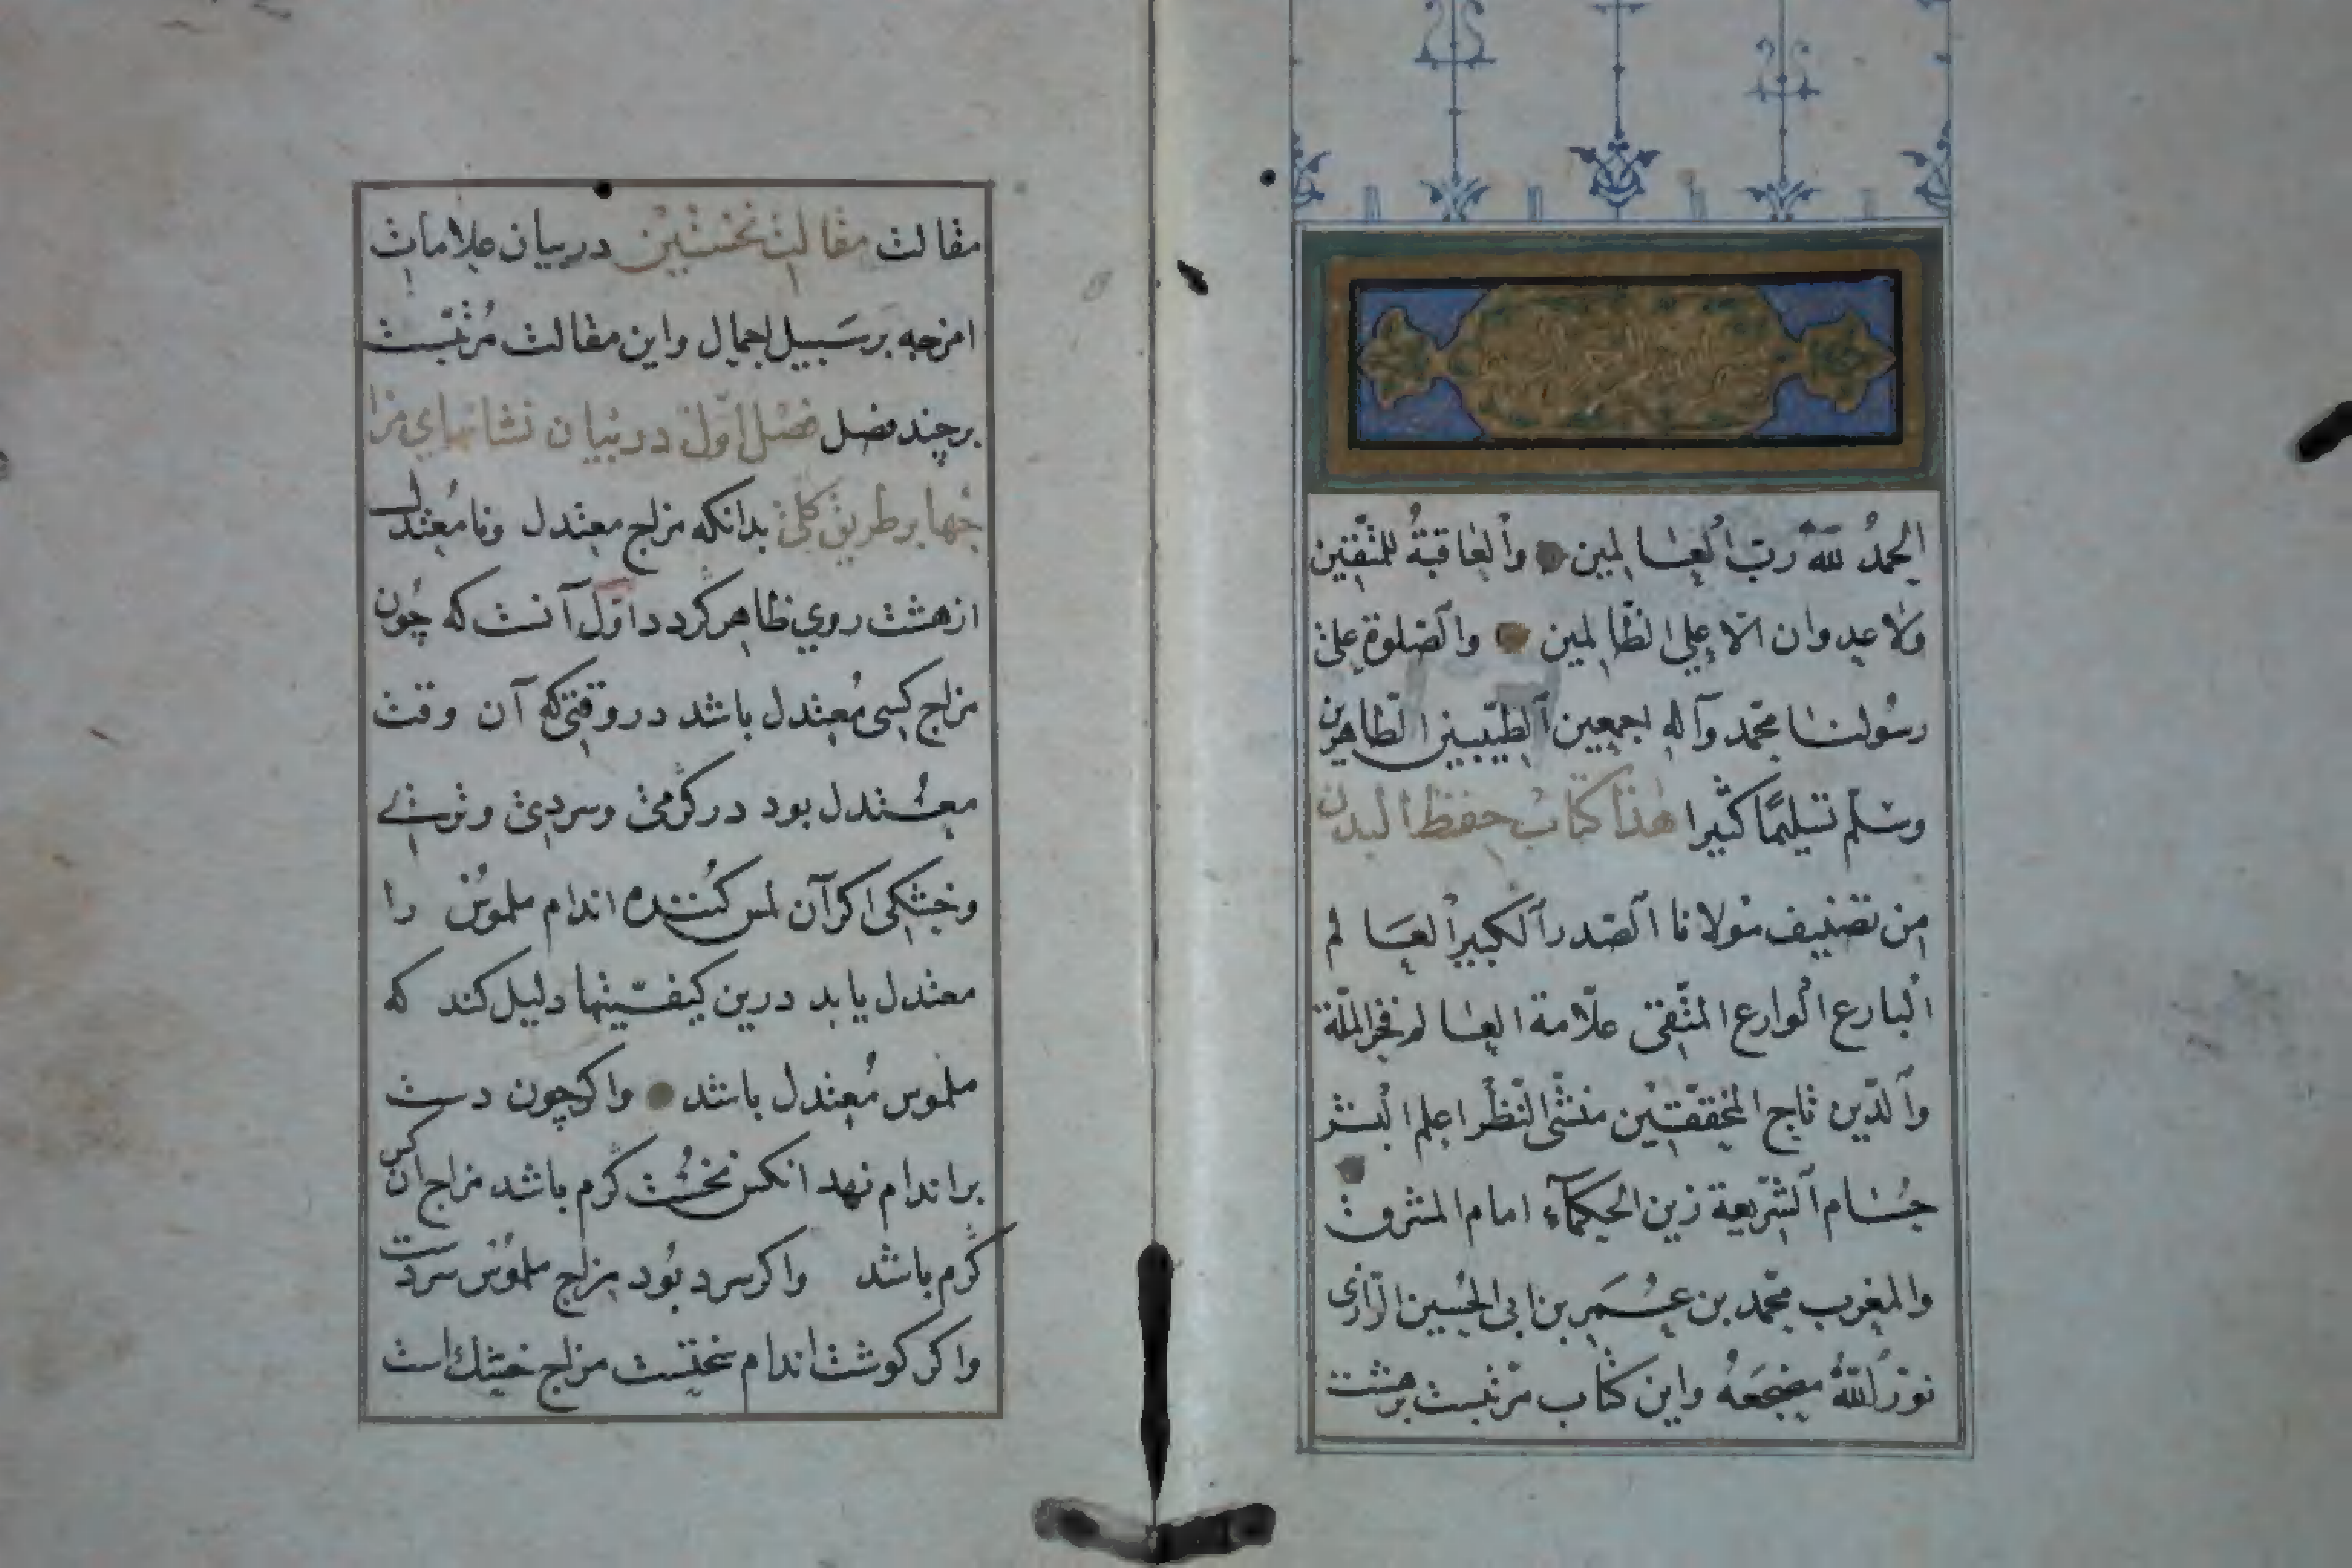 بسم الله الرحمن الرحيم
الحمدُ لله ربّ العالمين والعاقبةُ للمتّقين
ولا عدوان الا علي الظّالمين والصّلوة على
رسُولنا محمّد وآله اجمعين الطيّبين الطّاهرين
وسلّم تسليمًا كثيرا هذا كتاب حفظ البدن
من تصنيف مولانا الصّدر الكبير العالم
البارع الوارع المتّقى علّامة العالم فخر الملّة
والدّين تاج المحقّقين منشئ النّظر اعلم البشر
حُسام الشّريعة زين الحكمآء امام المشرق
والمغرب محمّد بن عُمَر بن ابى الحُسين الرّازى
نوّر اللّهُ مضجعَهُ واين كتاب مرتّبست برهشت
مقالت مقالت نخستين در بيان علامات
امزجه بر سَبيل اجمال واين مقالت مُرتّبست
بر چند فصل فصل اوّل در بيان نشانهاي مزا
جها بر طريق كلّى بدانكه مزاج معتدل ونا مُعتدل
از هشت روي ظاهر گردد اوّل آنست كه چُون
مزاج كسى مُعتدل باشد در وقتى كه آن وقت
معتدل بود در گرمى وسردى وترى
وخشكى اگر آن لمس كُننده اندام ملموس را
معتدل يابد درين كيفيّتها دليل كند كه
ملموس مُعتدل باشد واگر چون دست
بر اندام نهد انكس نخُست گرم باشد مزاج ان كس
گرم باشد واگر سرد بُود مزاج ملموس سردست
واگر گوشت اندام سختست مزاج خشك است